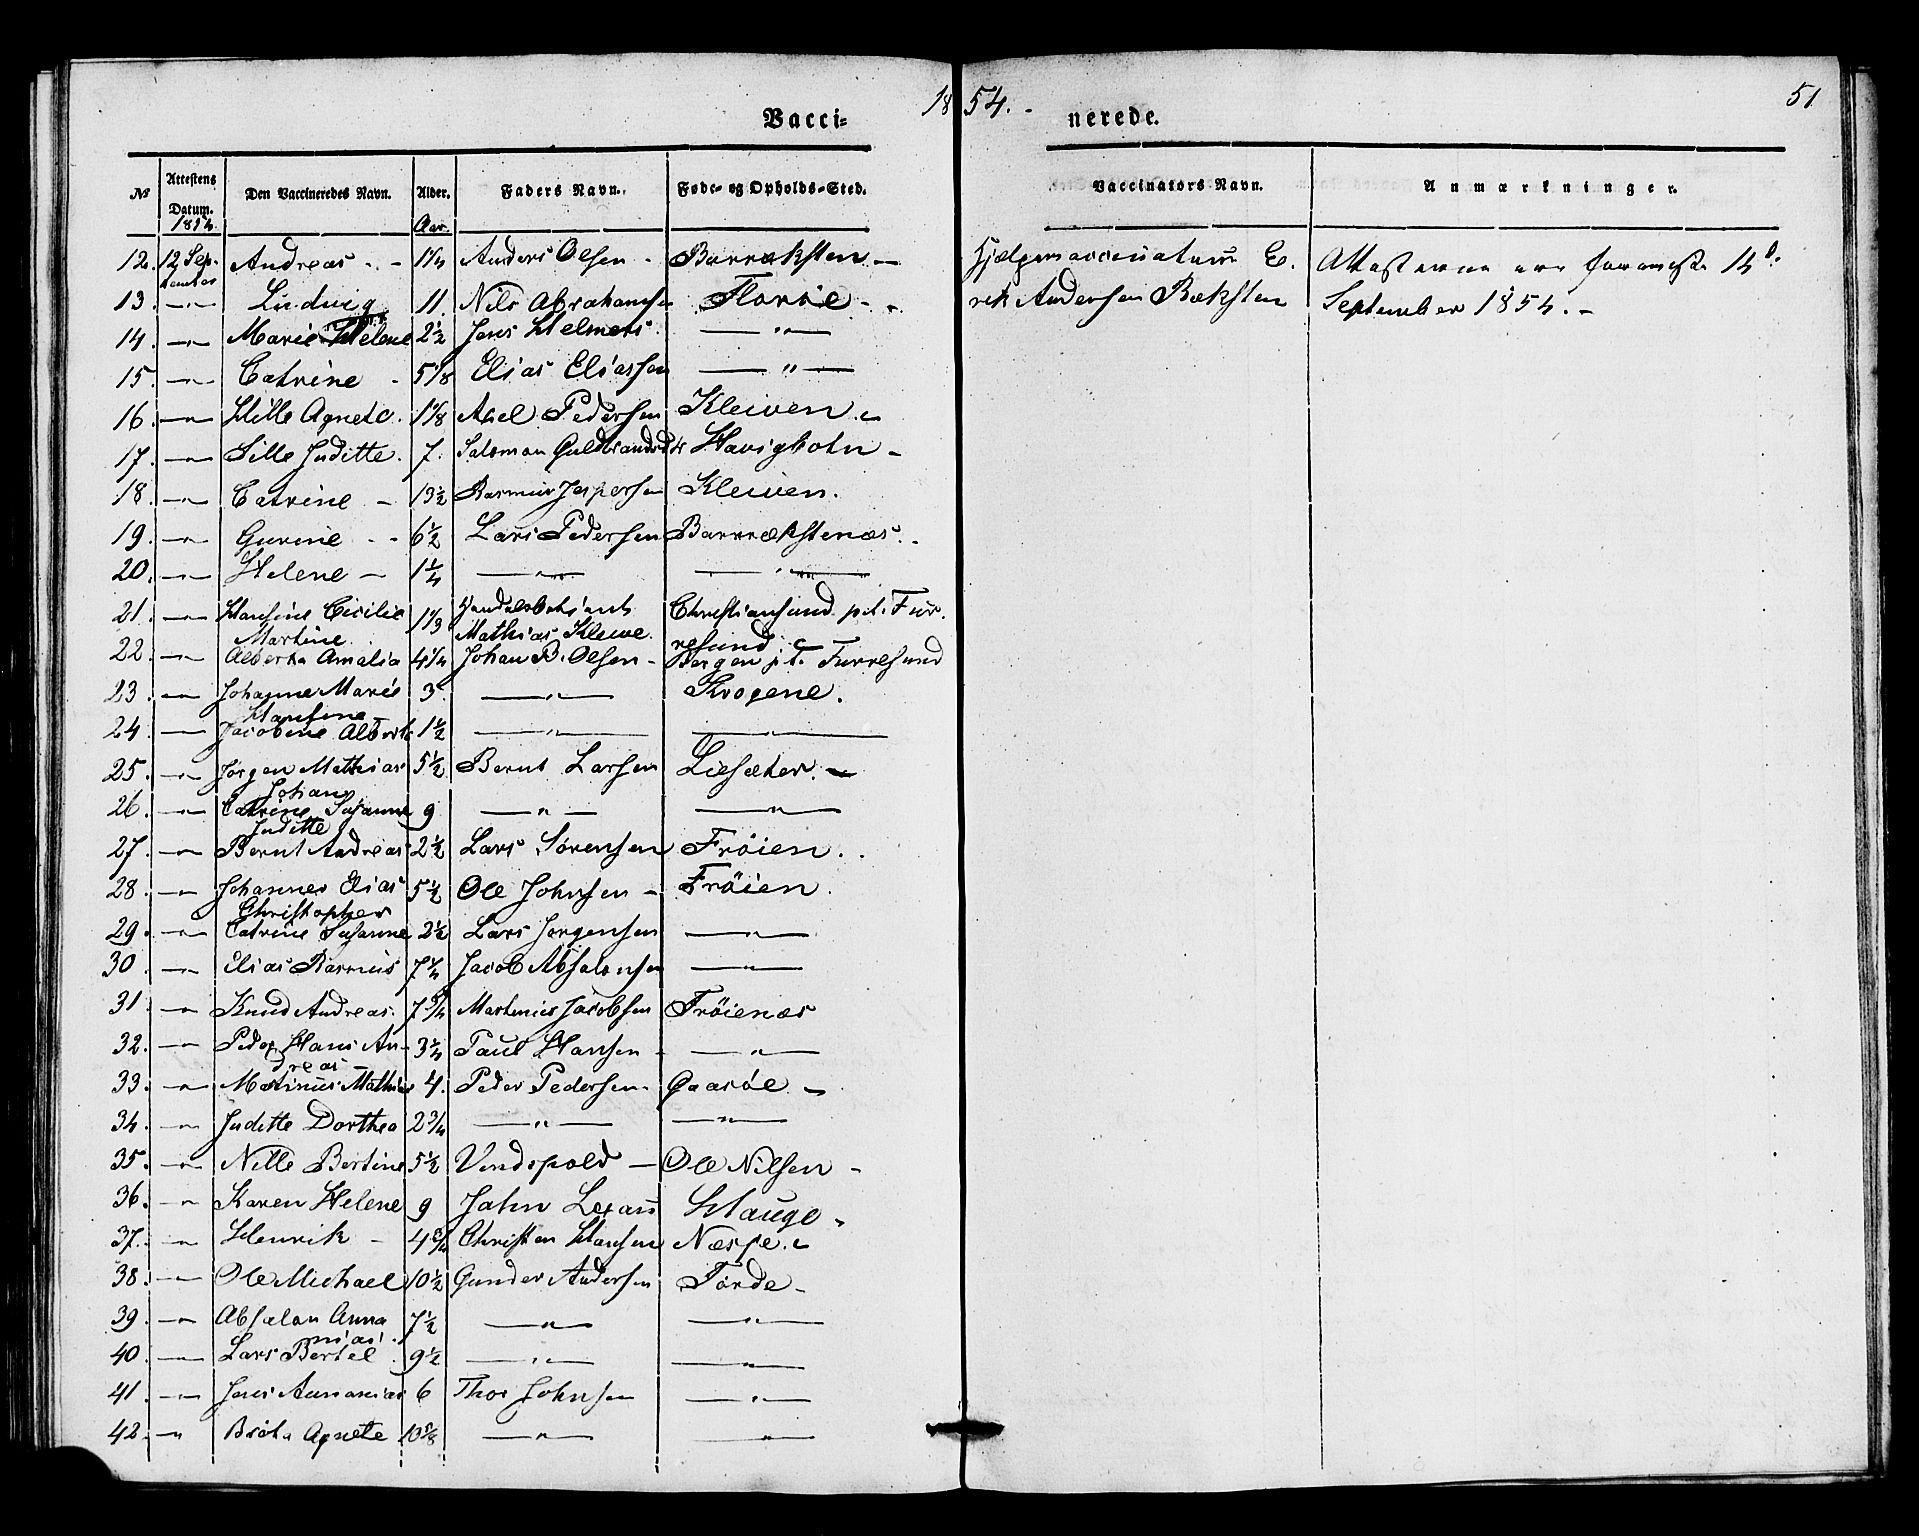 18 54. -
51
Vacci- nerede.
No | Attestens Datum. 1854. | Den Vaccineredes Navn. | Alder. Aar. | Faders Navn. | Føde- og Opholds-Sted. | Vaccinators Navn. | Anmærkninger.
12. | 12 September | Andreas - - | 1 1/4 | Anders Olsen - | Barræksten - | Hjelpevaccinateur E- | Attesterne ere fremviste 14d.
13. | -"- | Ludvig | 11. | Nils Abrahamsen | Floröe - - | rik Andersen Ræksten | September 1854. -
14. | -"- | Marie Helene | 2 1/2 | Jens Helmers | -"-
15. | -"- | Catrine - | 5 1/8 | Elias Eliassen | -"-
16. | -"- | Hille Agnete. | 1 1/8 | Abel Pedersen | Kleiven.
17. | -"- | Sille Juditte. | 7. | Salomon Guldbrands | Havigbotn -
18. | -"- | Catrine - | 13 1/2 | Rasmus Jespersen | Kleiven.
19. | -"- | Gurine - - | 6 1/2 | Lars Pedersen | Barrækstenæs. -
20. | -"- | Helene - | 1 1/4 | -"- | -"-
21. | -"- | Hansine Cicilie | 1 1/3 | Handelsbetjent | Christiansund p.t. Fur-
Martine | Mathias Kleive. | resund
22. | -"- | Alberta Amalia | 4 1/4 | Johan B. Olsen - | Bergen p.t. Furresund
23. | -"- | Johanne Marie | 3. | -"- | Krogene.
Hansine
24. | -"- | Jacobine Alberte | 1 1/2 | -"- | -"-
25. | -"- | Jørgen Mathias | 5 1/2 | Bernt Larsen | Liesæter. -
Johan
26. | -"- | Catrine Susanne | 9 | -"- | -"-
Juditte
27. | -"- | Bernt Andreas | 2 1/2 | Lars Sørensen | Fröien. .
28. | -"- | Johannes Elias | 5 1/2 | Ole Johnsen - | Fröien.
Christopher
29. | -"- | Catrine Susanne | 2 1/2 | Lars Jørgensen | -"-
30. | -"- | Elias Rasmus | 7 1/4 | Jacob Absalonsen | -"-
31. | -"- | Knud Andreas. | 7 3/4 | Martinus Jacobsen | Fröienæs
32. | -"- | Peder Hans An- | 3 1/4 | Paul Hansen - | -"-
dreas -
33. | -"- | Martinus Mathias | 4. | Peder Pedersen. | Gaasöe -
34. | -"- | Juditte Dorthea | 2 3/4 | -"- | -"-
35. | -"- | Nille Bertine | 5 1/2 | Vindspold - | Ole Nilsen -
36. | -"- | Karen Helene | 9 | Jahn Lexau | Hauge -
37. | -"- | Henrik - | 4 3/4 | Christen Hansen | Næsje.
38. | -"- | Ole Michael | 10 1/2 | Gunder Andersen | Førde -
39. | -"- | Absalon Anna | 7 1/2 | -"- | -"-
nias.
40. | -"- | Lars Bertel | 9 1/2 | -"- | -"-
41. | -"- | Jens Annanias | 6 | Thor Johnsen | -"-
42. | " | Brita Agnete | 10 5/8 | -"- | -"-